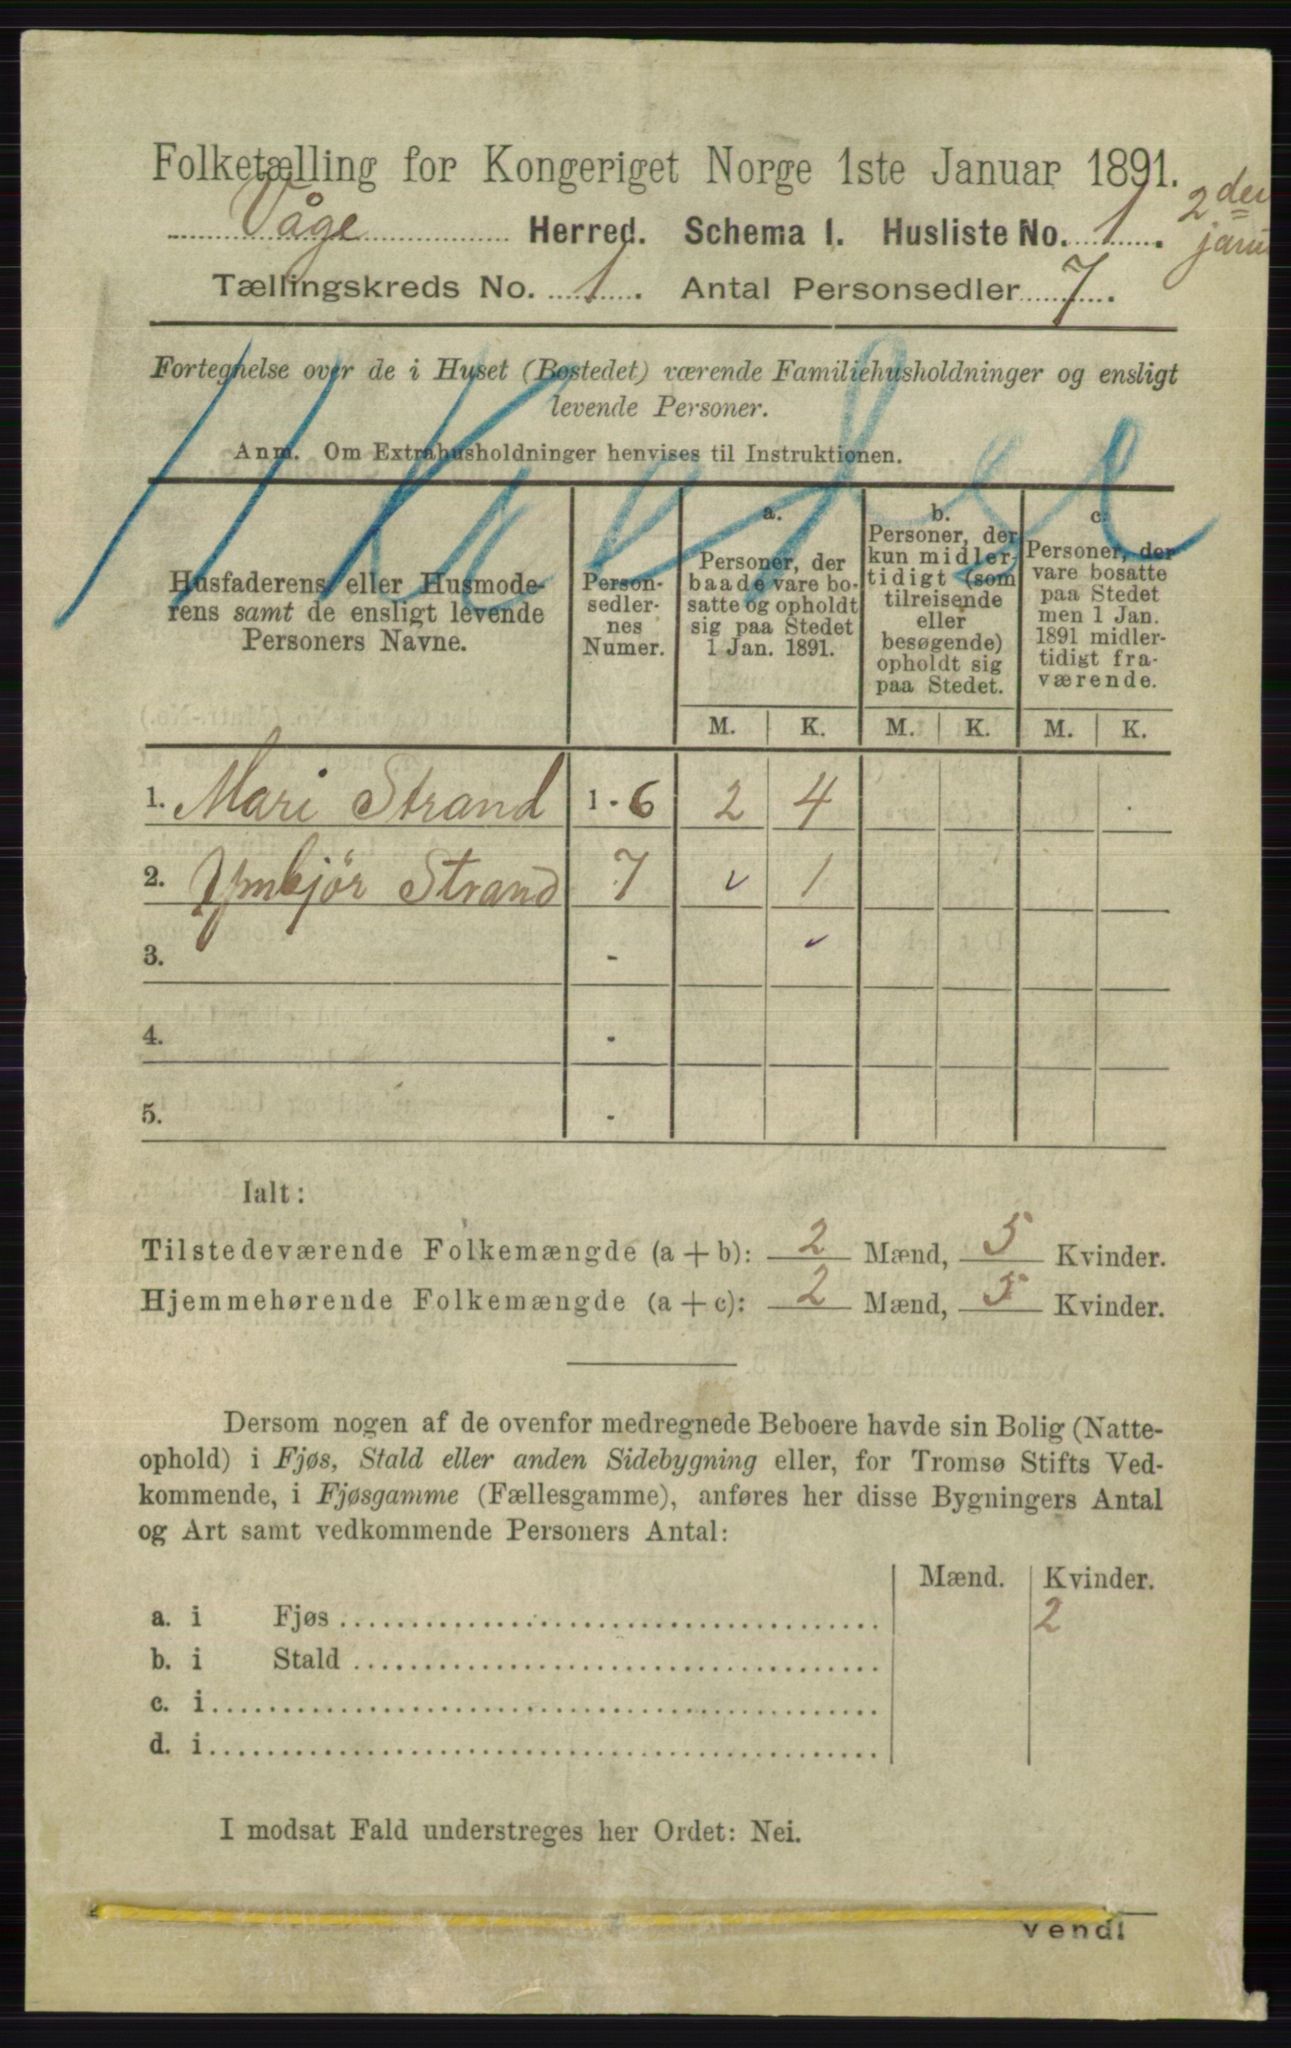 Folketælling for Kongeriget Norge 1ste Januar 1891.
Våge Herred. Schema I. Husliste No. 1. 2den
Tællingskreds No. 1. Antal Personsedler 7.
Fortegnelse over de i Huset (Bostedet) værende Familiehusholdninger og ensligt
levende Personer.
Anm. Om Extrahusholdninger henvises til Instruktionen.
Husfaderens eller Husmode-
rens samt de ensligt levende
Personers Navne.
Person-
sedler-
nes
Numer.
a.
Personer, der
baade vare bo-
satte og opholdt
sig paa Stedet
1 Jan. 1891.
b.
Personer, der
kun midler-
tidigt (som
tilreisende
eller
besøgende)
opholdt sig
paa Stedet.
c.
Personer, der
vare bosatte
paa Stedet
men 1 Jan.
1891 midler-
tidigt fra-
værende.
M. K. M. K. M. K.
1. Mari Strand 1 - 6 2 4
2. Strand 7 v 1
3. -
4. -
5. -
Ialt:
Tilstedeværende Folkemængde (a + b): 2 Mænd, 5 Kvinder.
Hjemmehørende Folkemængde (a + c): 2 Mænd, 5 Kvinder.
Dersom nogen af de ovenfor medregnede Beboere havde sin Bolig (Natte-
ophold) i Fjøs, Stald eller anden Sidebygning eller, for Tromsø Stifts Ved-
kommende, i Fjøsgamme (Fællesgamme), anføres her disse Bygningers Antal
og Art samt vedkommende Personers Antal:
Mænd. Kvinder.
a. i Fjøs 2
b. i Stald
c. i
d. i
I modsat Fald understreges her Ordet: Nei.
vend!